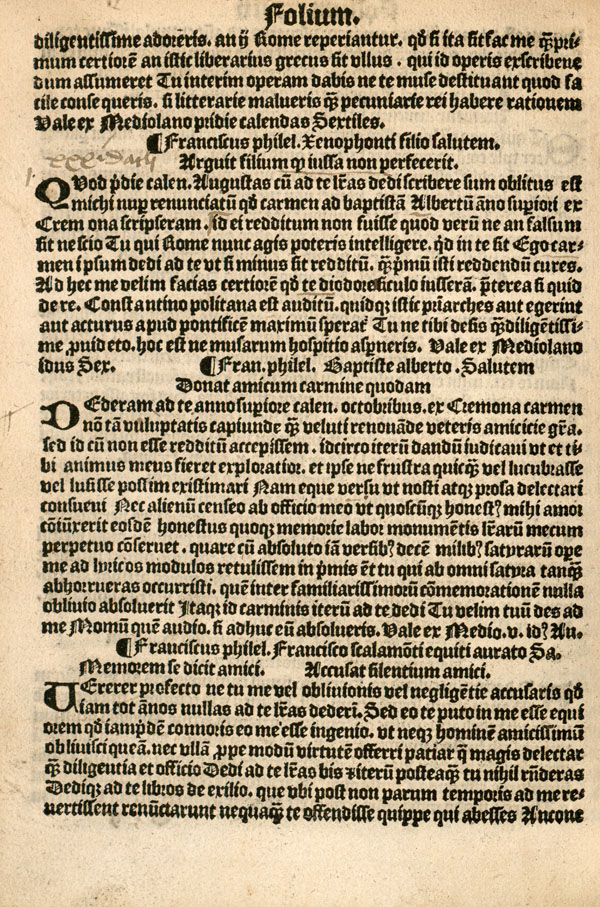 Folium.
diligentissime adoreris. an ij Rome reperiantur. qđ si ita sit fac me q̃ꝫ pri-
mum certiorē an istic liberarius grecus sit vllus. qui id operis exscribene
dum assumeret Tu interim operam dabis ne te muse destituant quod fa
cile conse queris. si litterarie malueris q̃ꝫ pecuniarie rei habere rationem
Vale ex Mediolano pridie calendas Sextiles.
¶Franciscus philel. Xenophonti filio salutem.
Arguit filium ꝙ iussa non perfecerit.
QVod p̄die calen. Augustas cū ad te lr̄as dedi scribere sum oblitus est
michi nuꝑ renunciatū qđ carmen ad baptistā Albertū āno suꝑiori ex
Crem ona scripseram. id ei redditum non fuisse quod verū ne an falsum
sit ne scio Tu qui Rome nunc agis poteris intelligere. q̄d in te sit Ego car-
men ipsum dedi ad te vt si minus sit redditū. q̃ꝫ p̄mū isti reddendū cures.
Ad hec me velim facias certiorē qđ te diodoresiculo iusserā. p̄terea si quid
de re. Constantino politana est auditū. quidqꝫ istic pr̄iarches aut egerint
aut acturus apud pontificē maximū sperat᷑ Tu ne tibi desis q̃ꝫ diligentissi-
me ꝓuideto. hoc est ne musarum hospitio aspneris. Vale ex Mediolano
idus Sex. ¶Fran. philel. Baptiste alberto. Salutem
Donat amicum carmine quodam
DEderam ad te anno suꝑiore calen. octobribus. ex Cremona carmen
nō tā voluptatis capiunde q̃ꝫ veluti renouāde veteris amicicie gr̄a.
sed id cū non esse redditū accepissem. idcirco iterū dandū iudicaui vt et ti-
bi animus meus fieret exploratior. et ipse ne frustra quicq̃ꝫ vel lucubrasse
vel lusisse possim existimari Nam eque versu vt nosti atqꝫ prosa delectari
consueui Nec alienū censeo ab officio meo vt quoscūqꝫ honestꝰ mihi amor
cōiūxerit eosdē honestus quoqꝫ memorie labor monumētis lr̄arū mecum
perpetuo cōseruet. quare cū absoluto iā versibꝰ decē milibꝰ satyrarū oꝑe
me ad lyricos modulos retulissem in p̄mis et tu qui ab omni satyra tanq̃ꝫ
abhorrueras occurristi. quē inter familiarissimorū cōmemorationē nulla
obliuio absoluerit Itaqꝫ id carminis iterū ad te dedi Tu velim tuū des ad
me Momū quē audio. si adhuc eū absolueris. Vale ex Medio. v. idꝰ Au.
¶Franciscus philel. Francisco scalamōti equiti aurato Sa.
Memorem se dicit amici. Accusat silentium amici.
VErerer profecto ne tu me vel obliuionis vel negligētie accusaris qđ
iam tot ānos nullas ad te lr̄as dederī. Sed eo te puto in me esse equi
orem qđ iamp̄dē connoris eo me esse ingenio. vt neqꝫ hominē amicissimū
obliuisci queā. nec vllā ꝓppe modū virtutē offerri patiar q̄ magis delectar
q̃ꝫ diligentia et officio Dedi ad te lr̄as bis ⁊ iterū posteaq̃ꝫ tu nihil rn̄deras
Dediqꝫ ad te libros de exilio. que vbi post non parum temporis ad me re-
uertissent renūctarunt nequaq̃ꝫ te offendisse quippe qui abesses Ancone